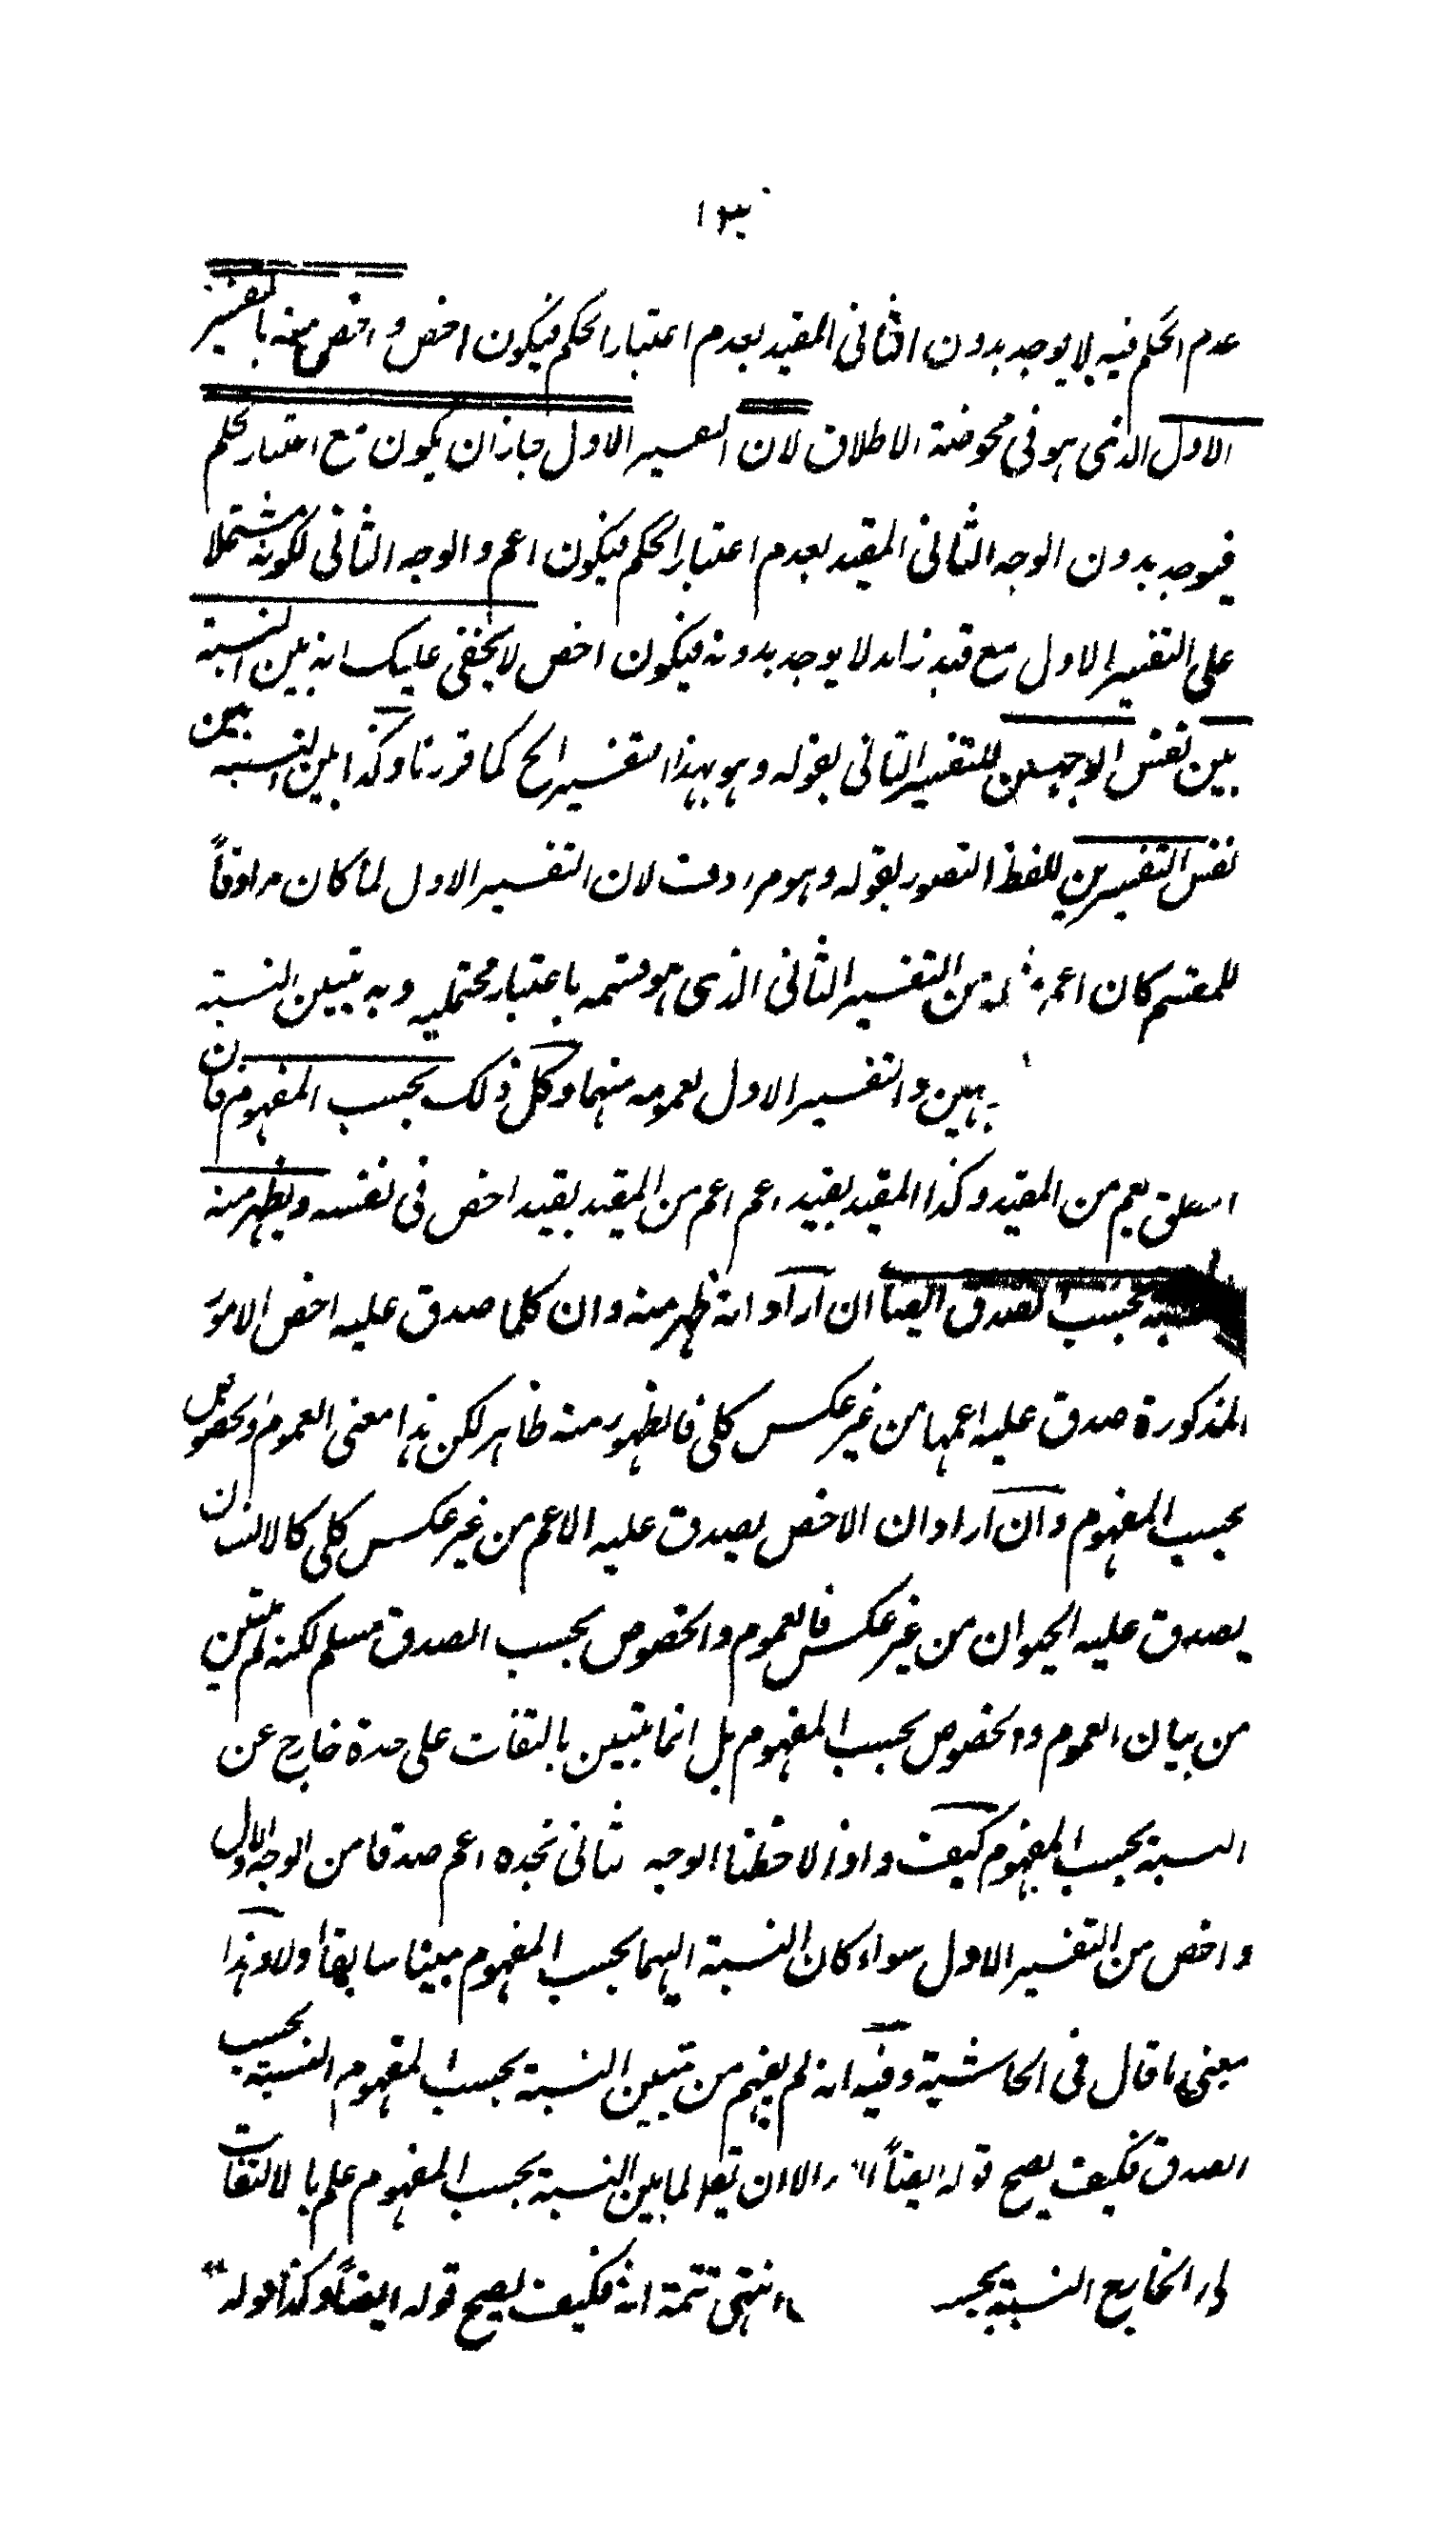 ١٣
عدم الحكم فيه لا يوجد بدون الثاني المقيد بعدم اعتبار الحكم فيكون اخص و اخص منه بالتفسير
الاول الذي هو في محوضة الاطلاق لان التفسير الاول جاز ان يكون مع اعتبار الحكم
فيوجد بدون الوجه الثاني المقيد بعدم اعتبار الحكم فيكون اعم و الوجه الثاني لكونه مشتملا
على التفسير الاول مع قيد زائد لا يوجد بدونه فيكون اخص لا يخفى عليك انه بين النسبة
بين نفس الوجهين للتفسير الثاني بقوله وهو بهذا التفسير الح كما قررنا وكذا بين النسبة بين
نفس التفسيرين للفظ التصور بقوله وهو مرادف لان التفسير الاول لما كان مرادفاً
للمقسم كان اعم من التفسير الثاني الذي هو قسمه باعتبار محتمليه وبه تبين النسبة
والتفسير الاول لعمومه منهما وكل ذلك بحسب المفهوم فان
يعم من المقيد وكذا المقيد بقيد اعم اعم من المقيد بقيد اخص في نفسه ويظهر منه
بحسب الصدق ايضا ان اراد انه ظهر منه وان كلما صدق عليه اخص الامور
المذكورة صدق عليه اعمها من غير عكس كلي فالظهور منه ظاهر لكن هذا معنى العموم والخصوص
بحسب المفهوم وان اراد ان الاخص يصدق عليه الاعم من غير عكس كلي كالانسان
يصدق عليه الحيوان من غير عكس فالعموم والخصوص بحسب الصدق مسلم لكنه لم يتبين
من بيان العموم والخصوص بحسب المفهوم بل انما يتبين بالتفات على حدة خارج عن
النسبة بحسب المفهوم كيف واذا لاحظنا الوجه الثاني نجده اعم صدقا من الوجه الاول
واخص من التفسير الاول سواء كان النسبة اليهما بحسب المفهوم مبينا سابقا اولا وهذا
معنى ما قال في الحاشية وفيه انه لم يفهم من تبين النسبة بحسب المفهوم النسبة بحسب
الصدق فكيف يصح قوله ايضاً الا ان لما بين النسبة بحسب المفهوم علم بالالتفات
الخارج النسبة انتهى تتمة انه فكيف يصح قوله ايضاً وكذا قوله